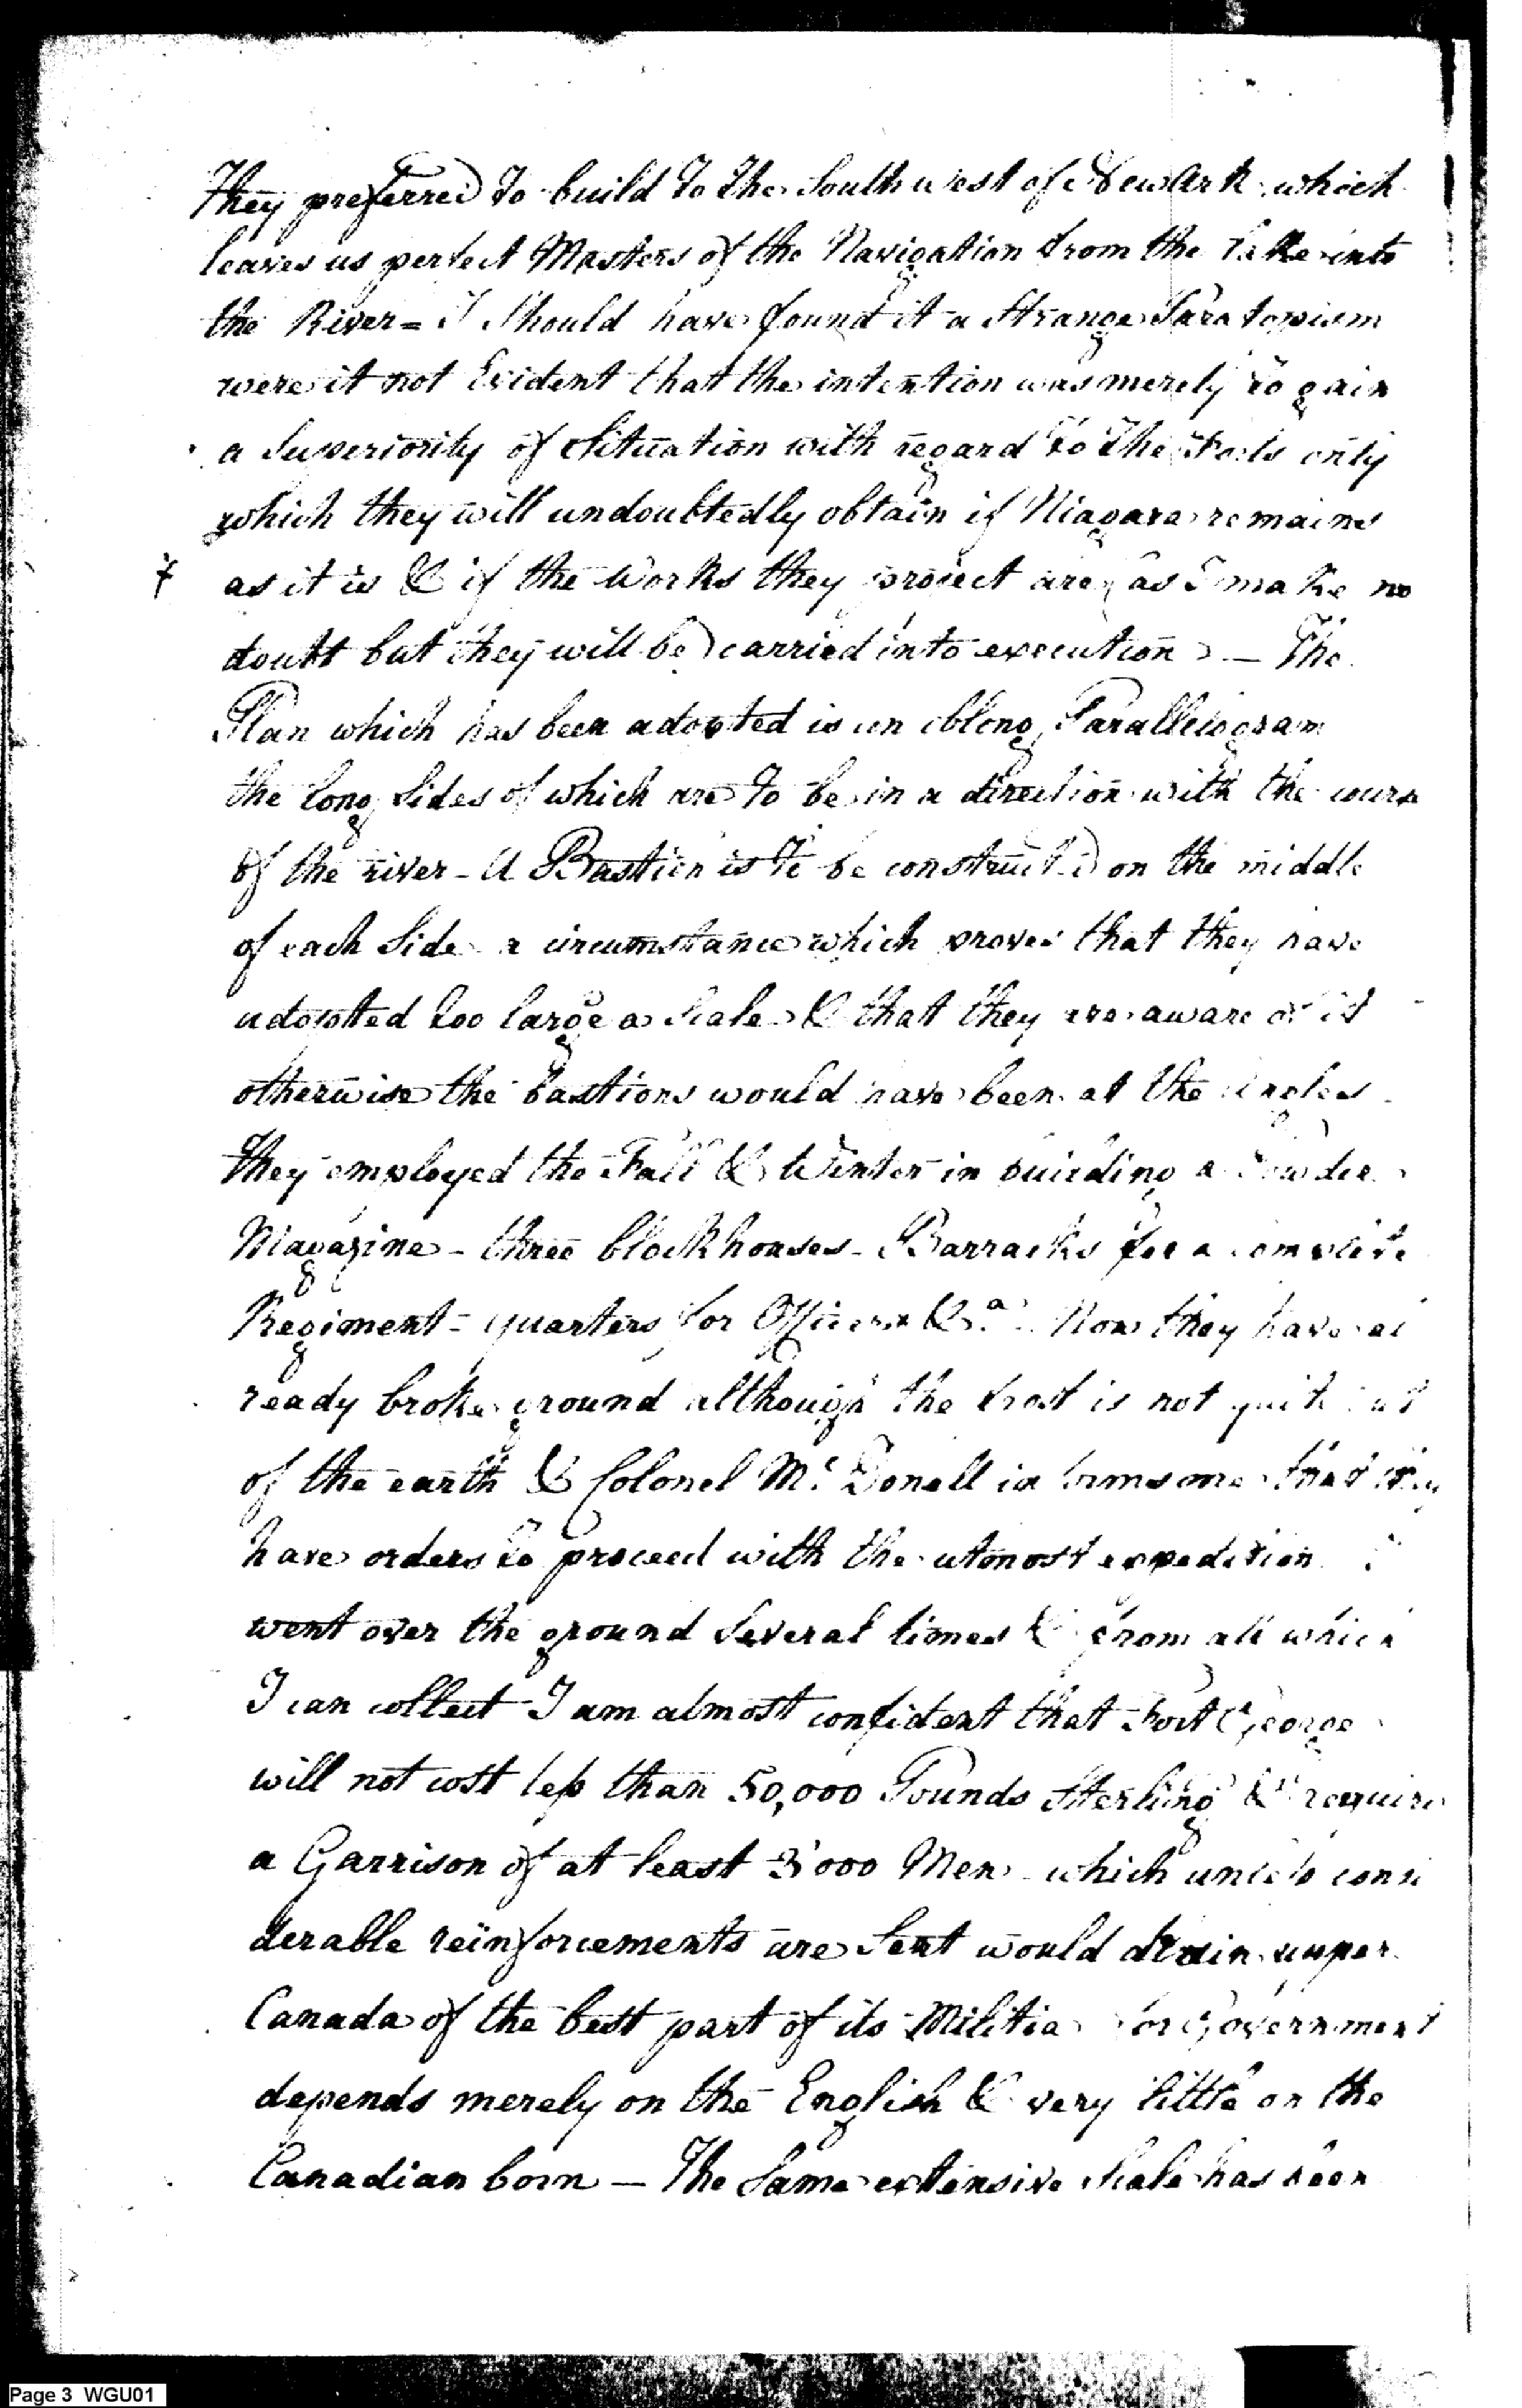 They preferred to build to the South west of Newark which
leaves us perfect Masters of the Navigation from the Lake into
the River = I Should have found it a Strange
were it not Evident that the intention was merely to gain
a Superiority of Situation with regard to the Forts only
which they will undoubtedly obtain if Niagara remains
as it is & if the Works they project are (as I make no
doubt but they will be) carried into execution — The
Plan which has been adopted is an oblong Parallelogram
the long Sides of which are to be in a direction with the course
of the river - A Bastion is to be constructed on the middle
of each Side a circumstance which proves that they have
adopted too large a Scale & that they are aware of it
otherwise the bastions would have been at the angles
They employed the Fall & Winter in building a Powder
Magazine - three blockhouses - Barracks for a complete
Regiment - quarters for Officers &.a Now they have al
ready broke ground although the frost is not quite out
of the earth & Colonel Mc Donell informs me that they
have orders to proceed with the utmost expedition I
went over the ground Several times & from all which
I can collect I am almost confident that Fort George
will not cost less than 50,000 Pounds Sterling & require
a Garrison of at least 3000 Men which unless consi
derable reïnforcements are Sent would drain upper
Canada of the best part of its Militia for Government
depends merely on the English & very little on the
Canadian born — The Same extensive Scale has been
Page 3 WGU01